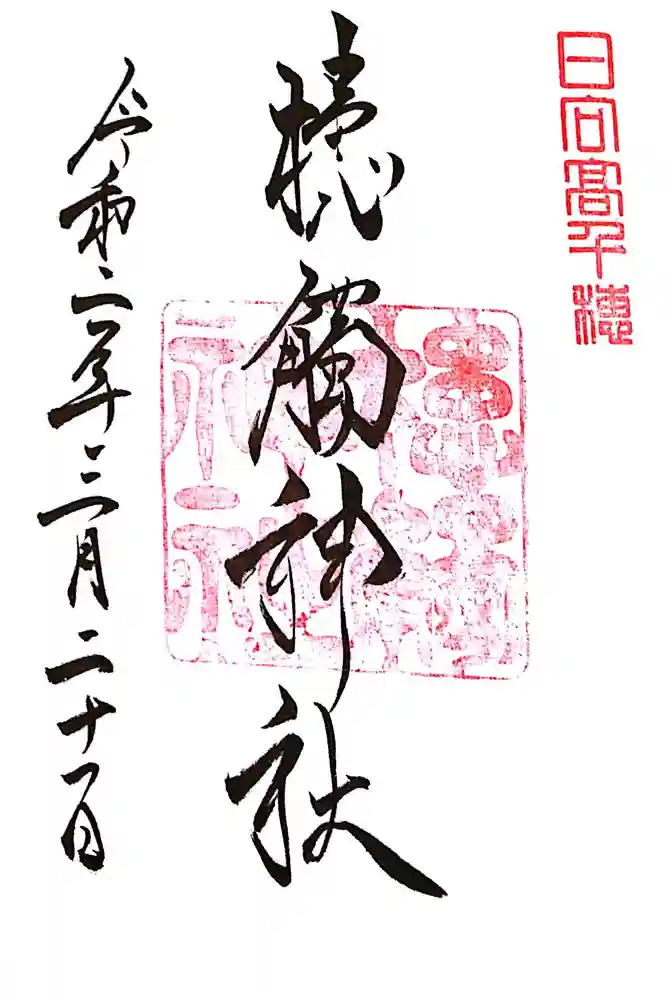 日向髙千穂
槵觸神社
令和二年三月二十一日